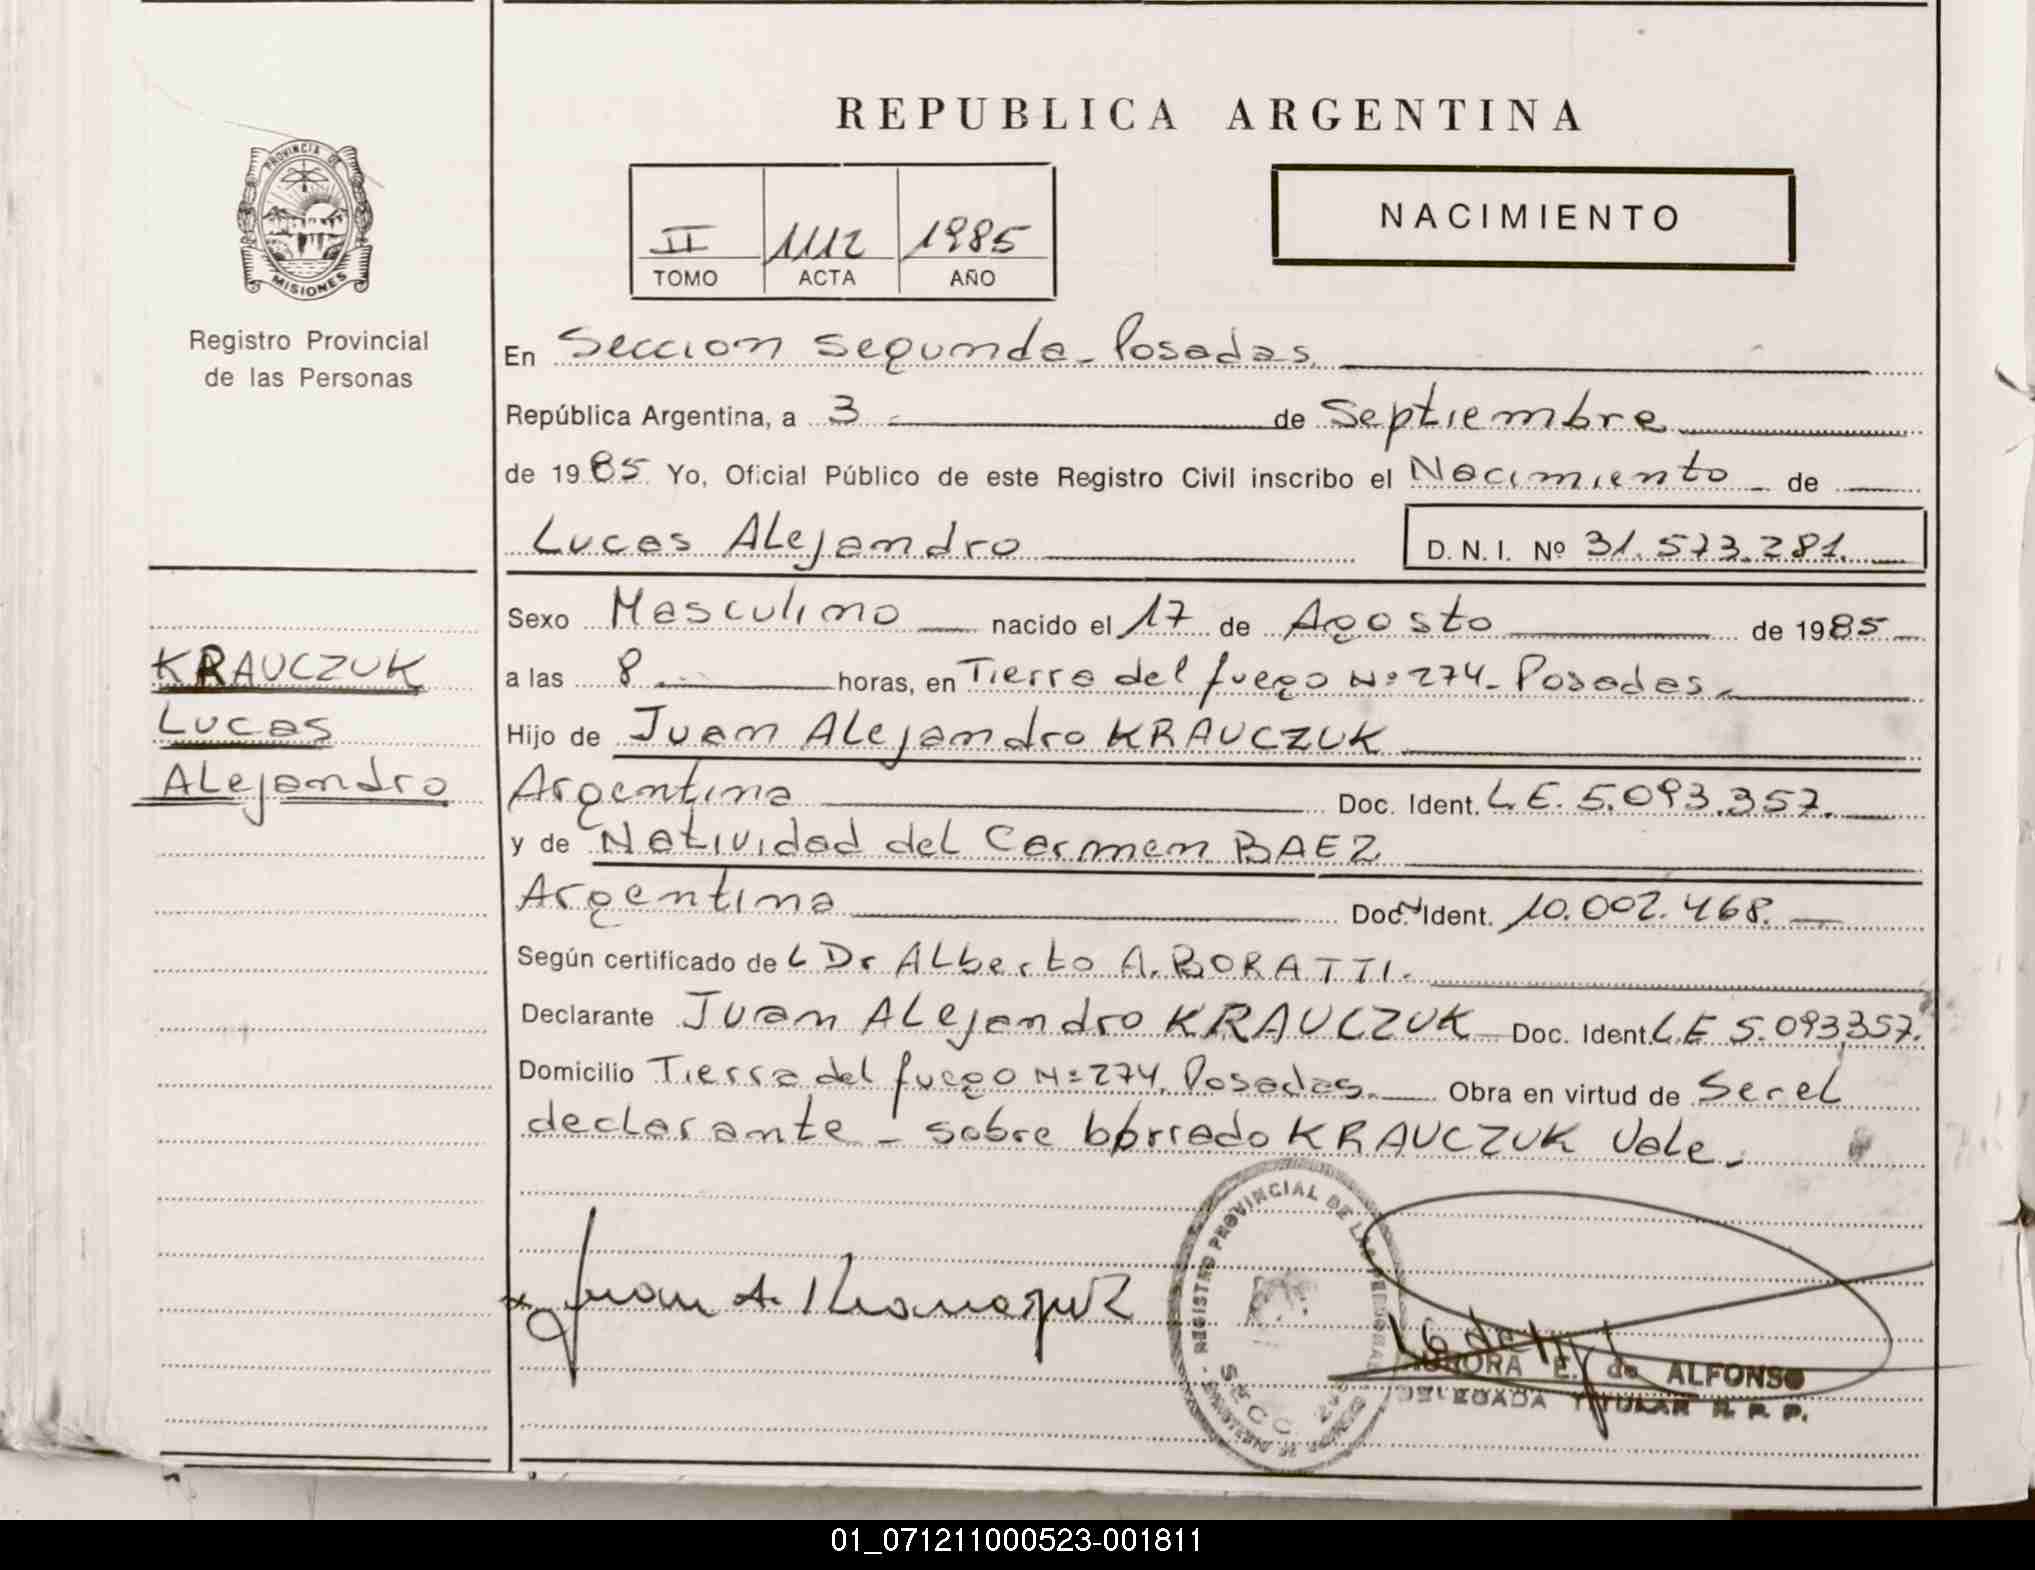 REPUBLICA ARGENTINA
PROVINCIA DE
MISIONES
Registro Provincial
de las Personas
II 1112 1985
TOMO ACTA AÑO
NACIMIENTO
En Seccion Segunda - Posadas.
República Argentina, a 3 de Septiembre
de 1985 Yo, Oficial Público de este Registro Civil inscribo el Nacimiento de
Lucas Alejandro D.N.I. Nº 31.573.281.
KRAUCZUK
Lucas
Alejandro
Sexo Masculino nacido el 17 de Agosto de 1985
a las 8 horas, en Tierra del fuego Nº 274 - Posadas.
Hijo de Juan Alejandro KRAUCZUK
Argentina Doc. Ident. L.E. 5.093.357.
y de Natividad del Carmen BAEZ
Argentina Doc. Ident. 10.002.468.
Según certificado del Dr Alberto A. BORATTI.
Declarante Juan Alejandro KRAUCZUK Doc. Ident. L.E 5.093.357.
Domicilio Tierra del fuego Nº 274. Posadas. Obra en virtud de Ser el
declarante - sobre borrado KRAUCZUK Vale.
REGISTRO PROVINCIAL DE LAS PERSONAS
SECC.
E. de ALFONSO
DELEGADA TITULAR R. P. P.
01_071211000523-001811